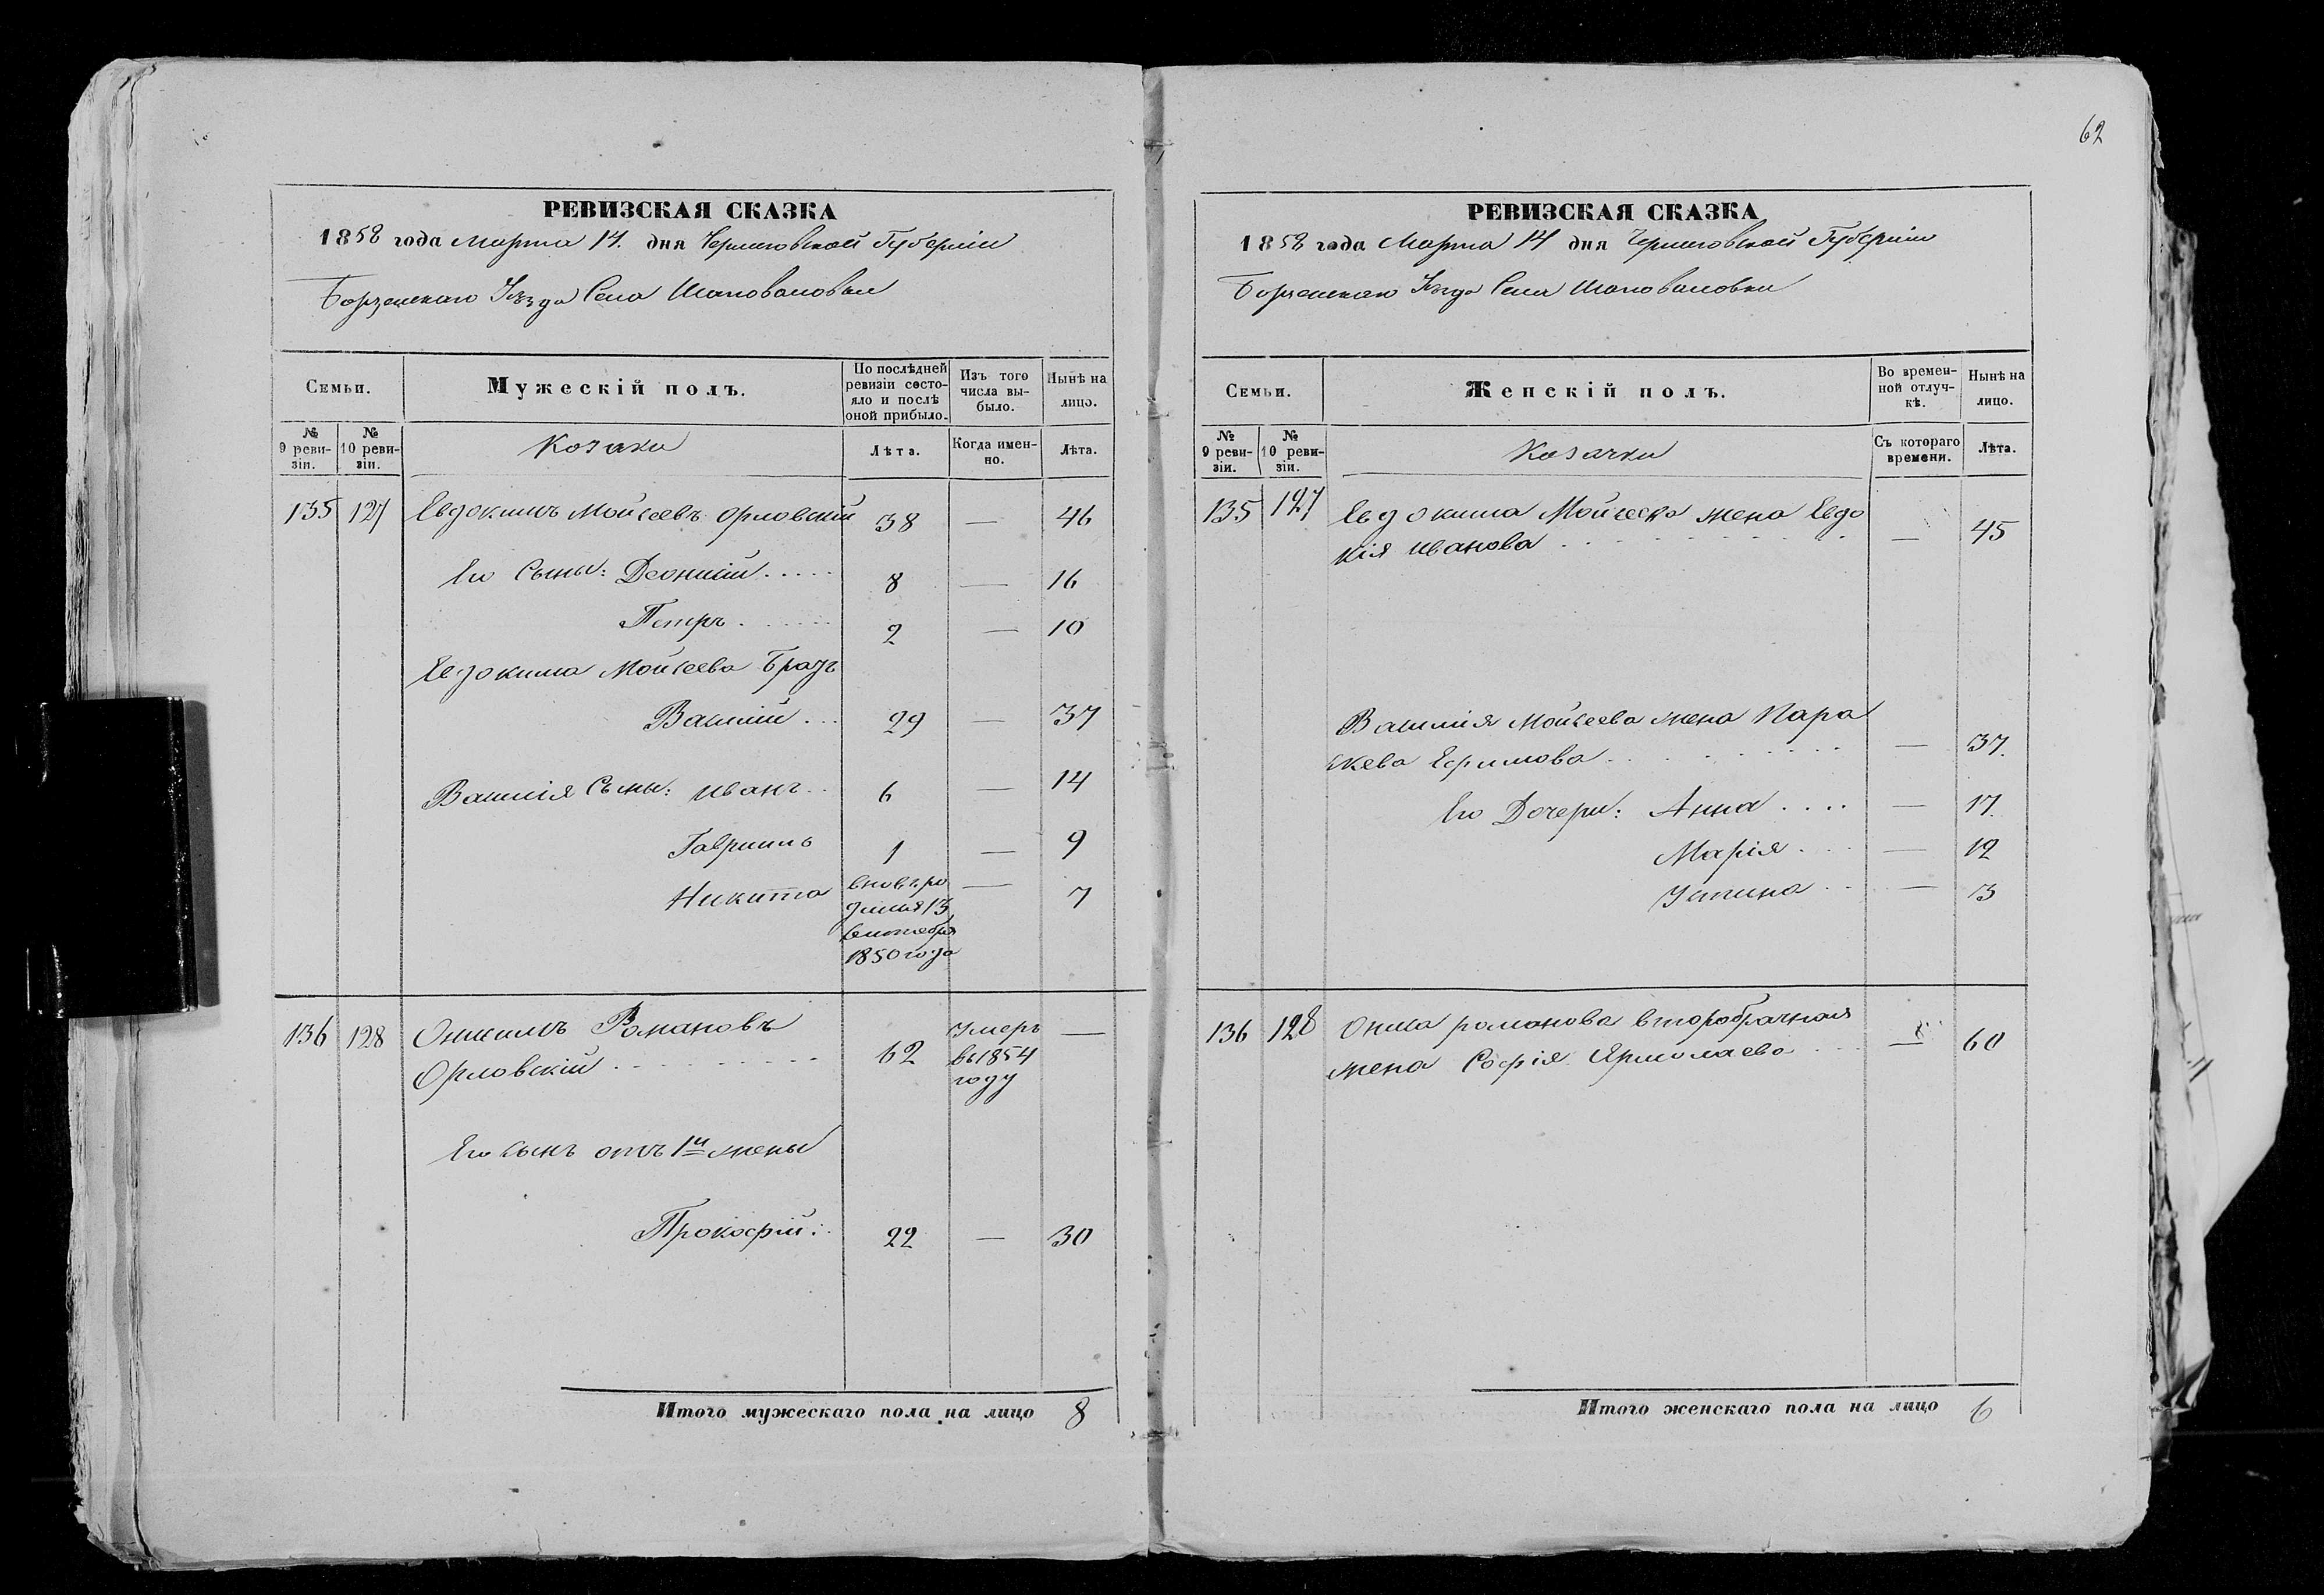 62
РЕВИЗСКАЯ СКАЗКА
1858 года Марта 14. дня Черниговской Губерніи
Борзенскаго Уѣзда Села Шаповаловки
Семьи.
Мужескій полъ.
По послѣдней ревизіи состояло и послѣ оной прибыло.
Изъ того числа выбыло.
Нынѣ на лицо.
№ 9 ревизіи.
№ 10 ревизіи.
Козаки
Лѣта.
Когда именно.
Лѣта.
135 127 Евдокимъ Мойсеевъ Орловскій 38 — 46
Его Сыны: Деонисій..... 8 — 16
Петръ....... 2 — 10
Евдокима Мойсеева Братъ
Василій... 29 — 37
Василія Сыны: Иванъ.. 6 — 14
Гавріилъ 1 — 9
Никита вновь ро — 7
дился 13
сентября
1850 года
136 128 Онисимъ Романовъ Умеръ —
Орловскій......... 62 въ 1854
году
Его сынъ отъ 1й жены
Прокофій:. 22 — 30
Итого мужескаго пола на лицо 8
РЕВИЗСКАЯ СКАЗКА
1858 года Марта 14 дня Черниговской Губерніи
Борзенскаго Уѣзда Села Шаповаловки
Семьи.
Женскій полъ.
Во временной отлучкѣ.
Нынѣ на лицо.
№ 9 ревизіи.
№ 10 ревизіи.
Козачки
Съ котораго времени.
Лѣта.
135 127 Евдокима Мойсеева жена Евдо
кія Иванова.......... — 45
Василія Мойсеева жена Пара
скева Ефимова......... — 37.
Его Дочери: Анна.... — 17.
Марія... — 12
Устина.. — 3
136 128 Онисима Романова второбрачная
жена Софія Ярмолаева... — 60
Итого женскаго пола на лицо 6